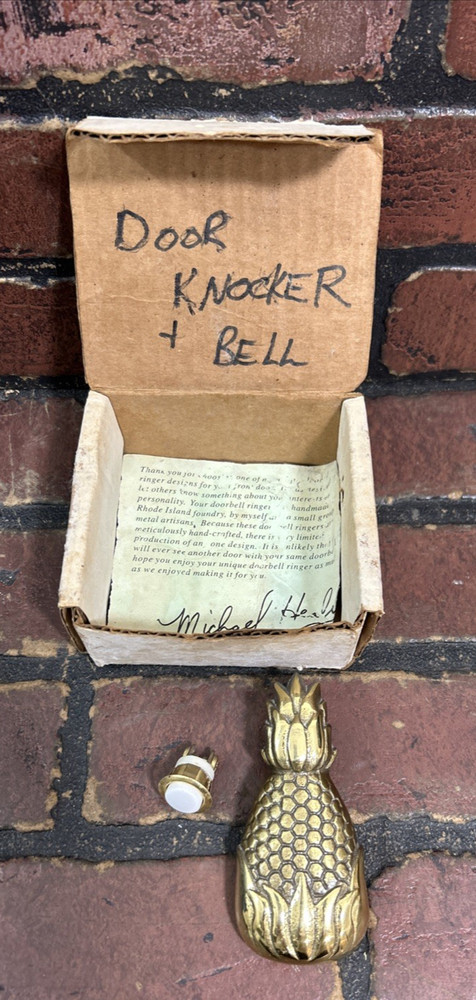 DOOR
KNOCKER
+ BELL
Thank you for choosing one of my
ringer designs for your front door.
let others know something about your interests
personality. Your doorbell ringer handmade
Rhode Island foundry, by myself a small
metal artisans. Because these doorbell ringers
meticulously hand-crafted, there is very limited
production of any one design. It is unlikely that
will ever see another door with your same doorbell
hope you enjoy your unique doorbell ringer as
as we enjoyed making it for you.
Michael